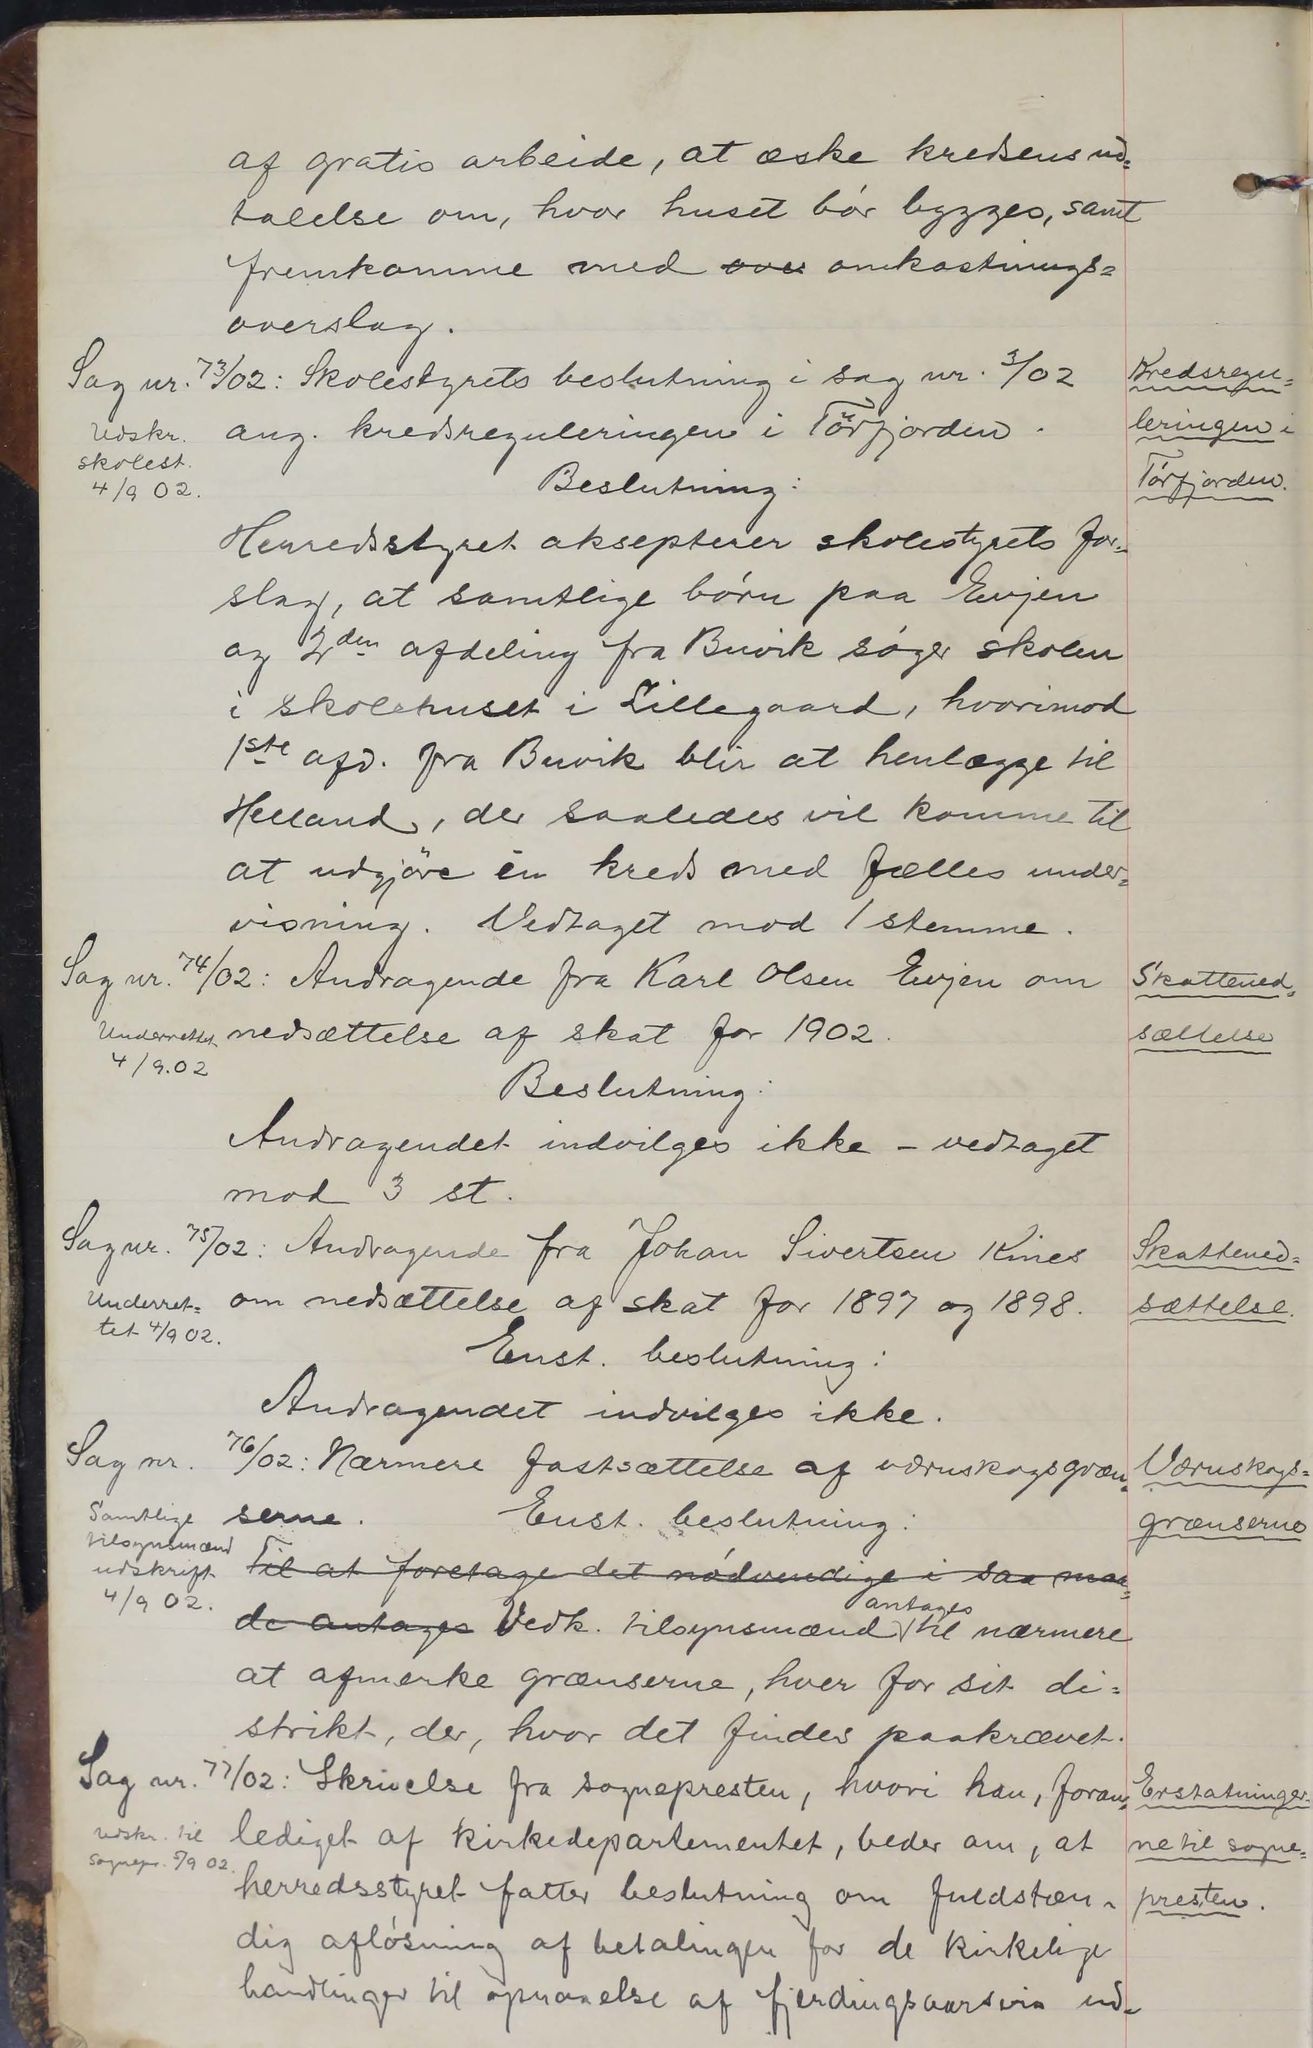 af gratis arbeide, at æske kredsens ud-
talelse om, hvor huset bór bygges, samt
fremkomme med over omkostnings-
overslag.
Sag nr. 73/02: Skolestyrets beslutning i sag nr. 3/02
Kredsregu-
Udskr.
ang. kredsreguleringen i Törfjorden.
leringen i
skolest.
4/9 02.
Beslutning:
Tórfjorden.
Herredsstyret aksepterer skolestyrets for-
slag, at samtlige bórn paa Evjen
og 2den afdeling fra Buvik sóger skolen
i skolehuset i Lillegaard, hvorimod
1ste afd. fra Buvik blir at henlægge til
Helland, der saaledes vil komme til
at udgjöre én kreds med fælles under-
visning. Vedtaget mod 1 stemme.
Sag nr. 74/02: Andragende fra Karl Olsen Evjen om
Skattened-
Underrettet
nedsættelse af skat for 1902.
sættelse
4/9.02
Beslutning:
Andragendet indvilges ikke - vedtaget
mod 3 st.
Sag nr. 75/02: Andragende fra Johan Sivertsen Kines
Skattened-
Underret-
om nedsættelse af skat for 1897 og 1898.
sættelse.
tet 4/9 02.
Enst. beslutning:
Andragendet indvilges ikke.
Sag nr. 76/02: Nærmere fastsættelse af værnskogsgræn-
Værnskogs-
Samtlige
serne. Enst. beslutning:
grænserne
tilsynsmænd
udskrift
4/9 02.
Til at foretage det nódvendige i saa maa-
de antages Vedk. tilsynsmænd antages til nærmere
at afmerke grænserne, hver for sit di-
strikt, der, hvor det findes paakrævet.
Sag nr. 77/02: Skrivelse fra sognepresten, hvori han, foran-
Erstatninger-
Udskr. til
lediget af kirkedepartementet, beder om, at
ne til sogne-
sognepr. 5/9 02.
herredsstyret fatter beslutning om fuldstæn-
presten.
dig aflósning af betalingen for de kirkelige
handlinger til opnaaelse af fjerdingsaarsvis ud-